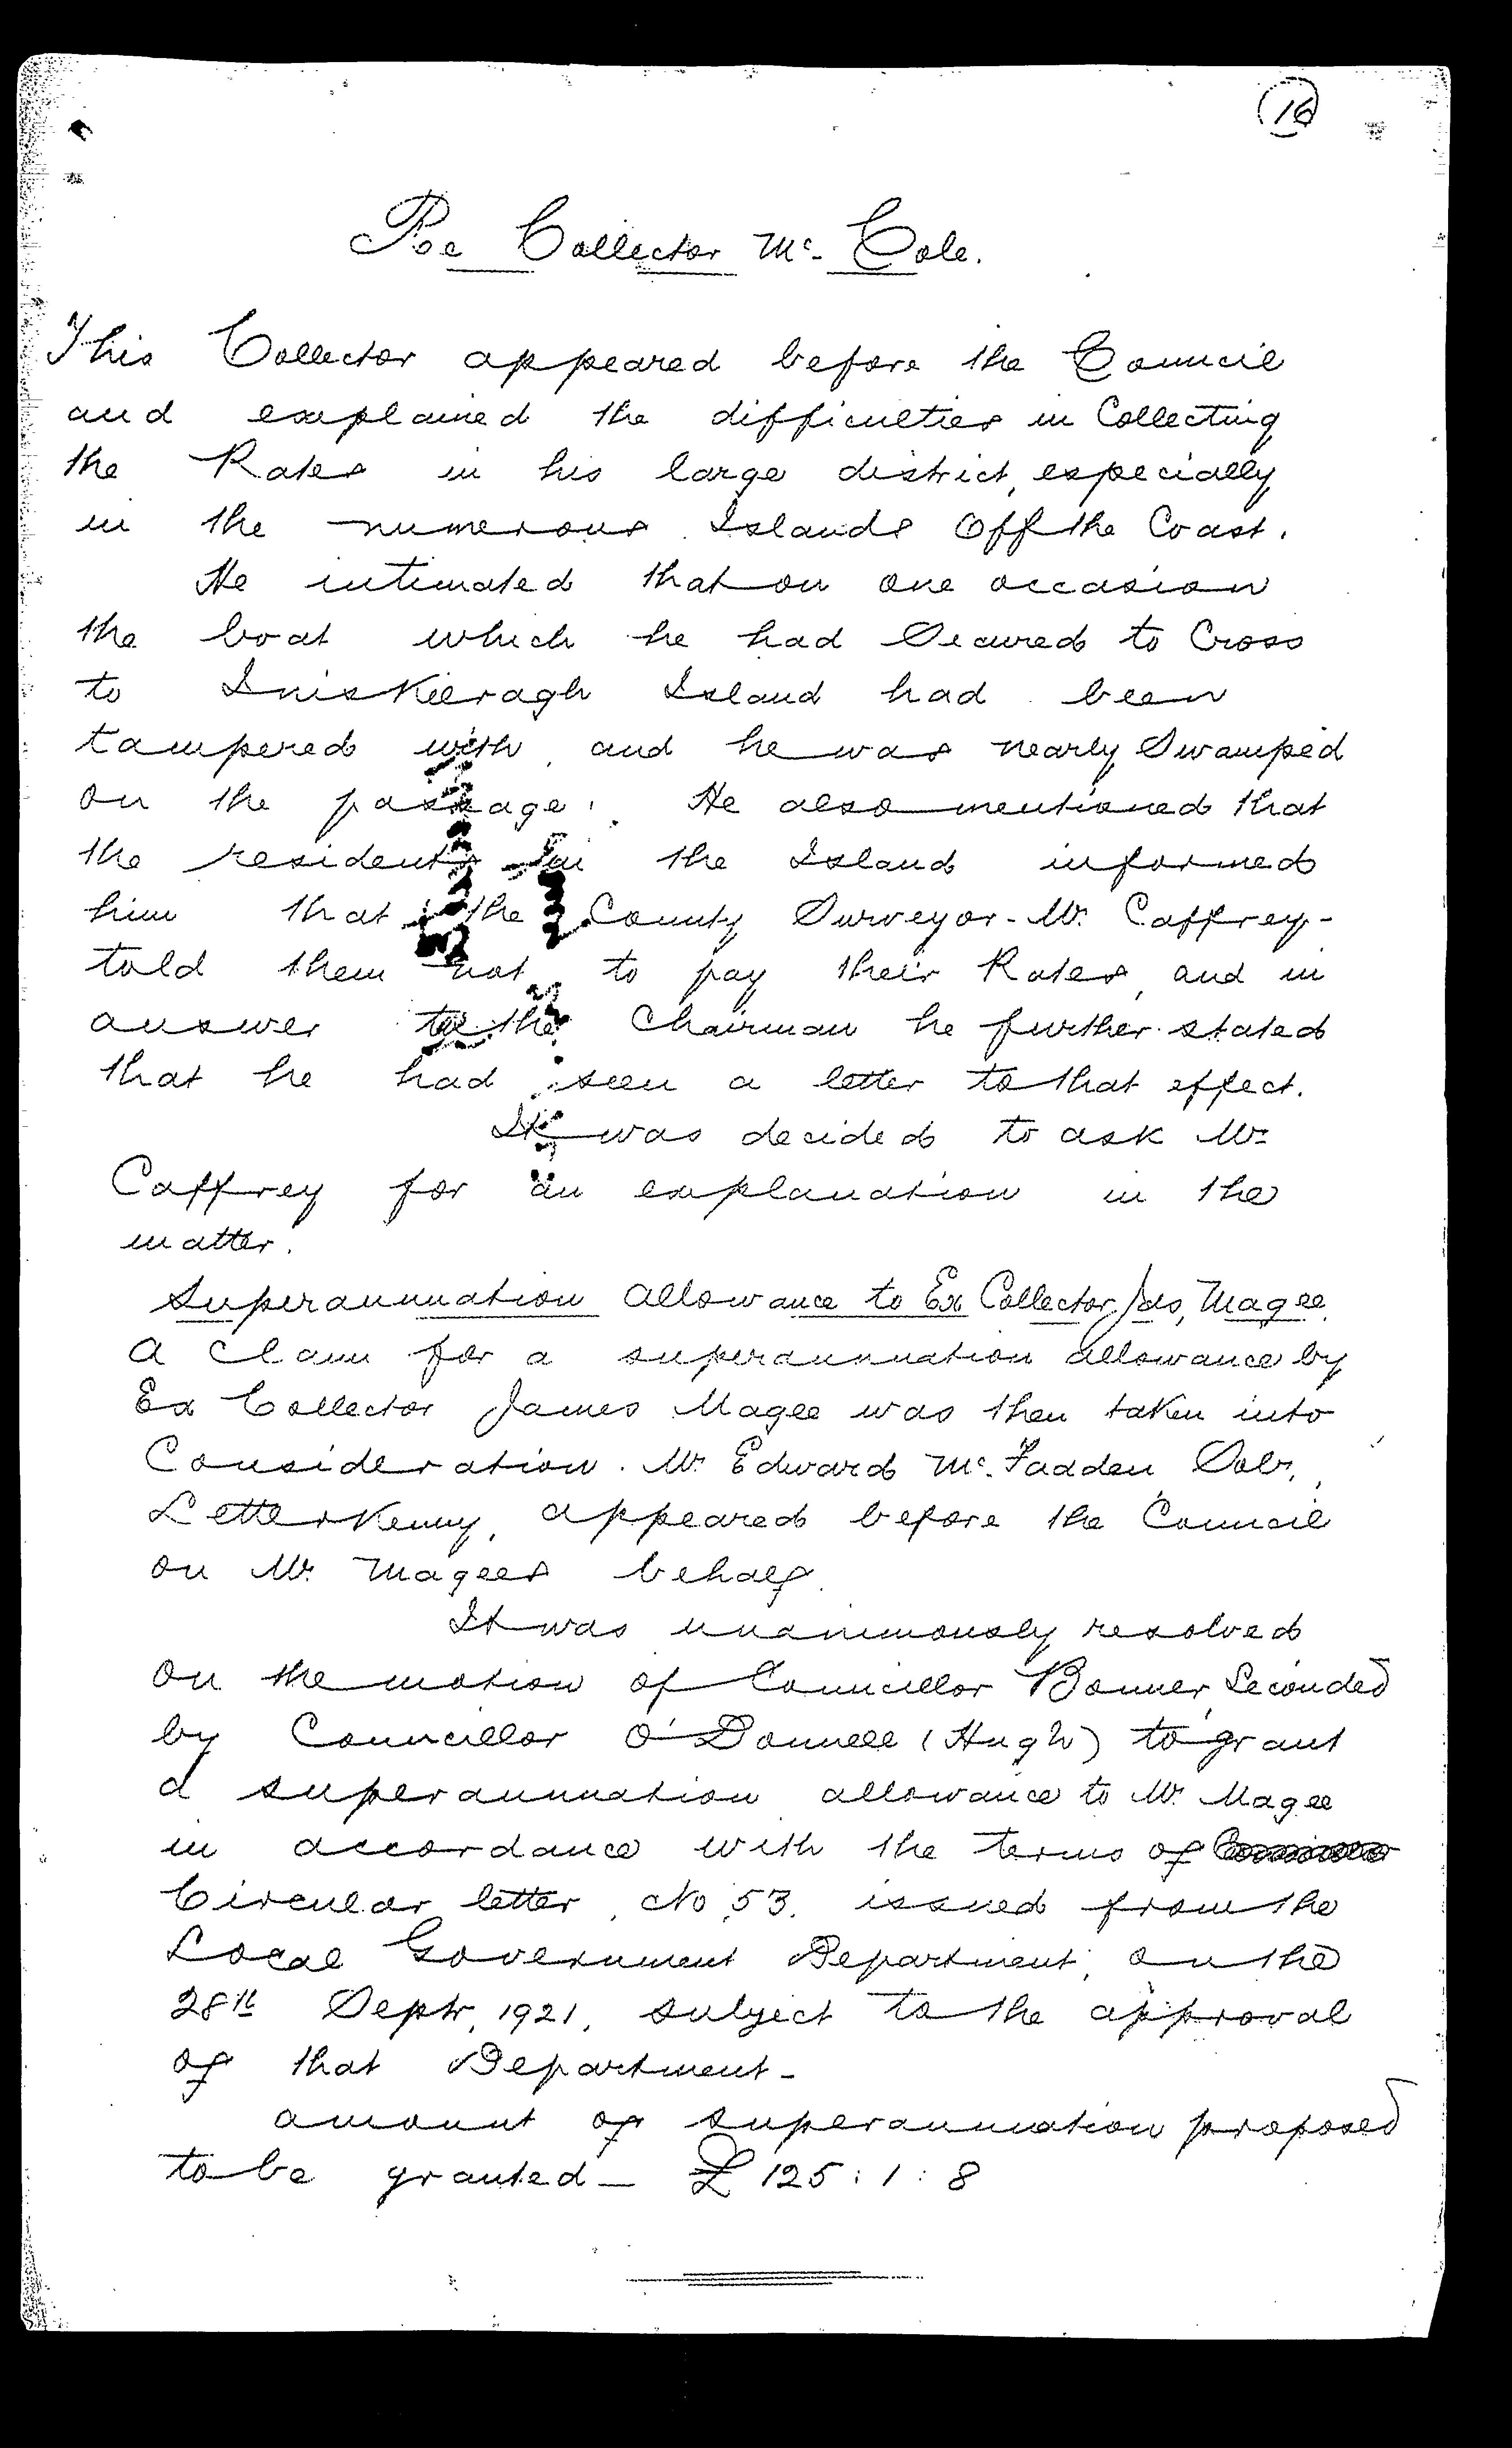 16
Poe Collector Mc. Cole.
This Collector appeared before the Council
and explained the difficulties in Collecting
the Rates in his large district, especially
in the numerous Islands Off the Coast.
He intimated that on one occasion
the boat which he had Secured to Cross
to Iniskeeragh Island had been
tampered with, and he was nearly Swamped
on the passage. He also mentioned that
the residents in the Island informed
him that the County Surveyor - Mr. Caffrey -
told them not to pay their Rates, and in
answer to the Chairman he further stated
that he had seen a letter to that effect.
It was decided to ask Mr.
Caffrey for an explanation in the
matter.
Superannuation Allowance to Ex Collector Jas, Magee.
A Claim for a superannuation allowance by
Ex Collector James Magee was then taken into
Consideration. Mr. Edward Mc. Fadden, Solr,
Letterkenny, appeared before the Council
on Mr. Magees behalf.
It was unanimously resolved
on the motion of Councillor Bonner, Seconded
by Councillor O'Donnell (Hugh) to grant
a superannuation allowance to Mr. Magee
in accordance with the terms of
Circular letter, No, 53, issued from the
Local Government Department, on the
28th Septr, 1921, subject to the approval
of that Department -
amount of superannuation proposed
to be granted - £125 : 1 : 8